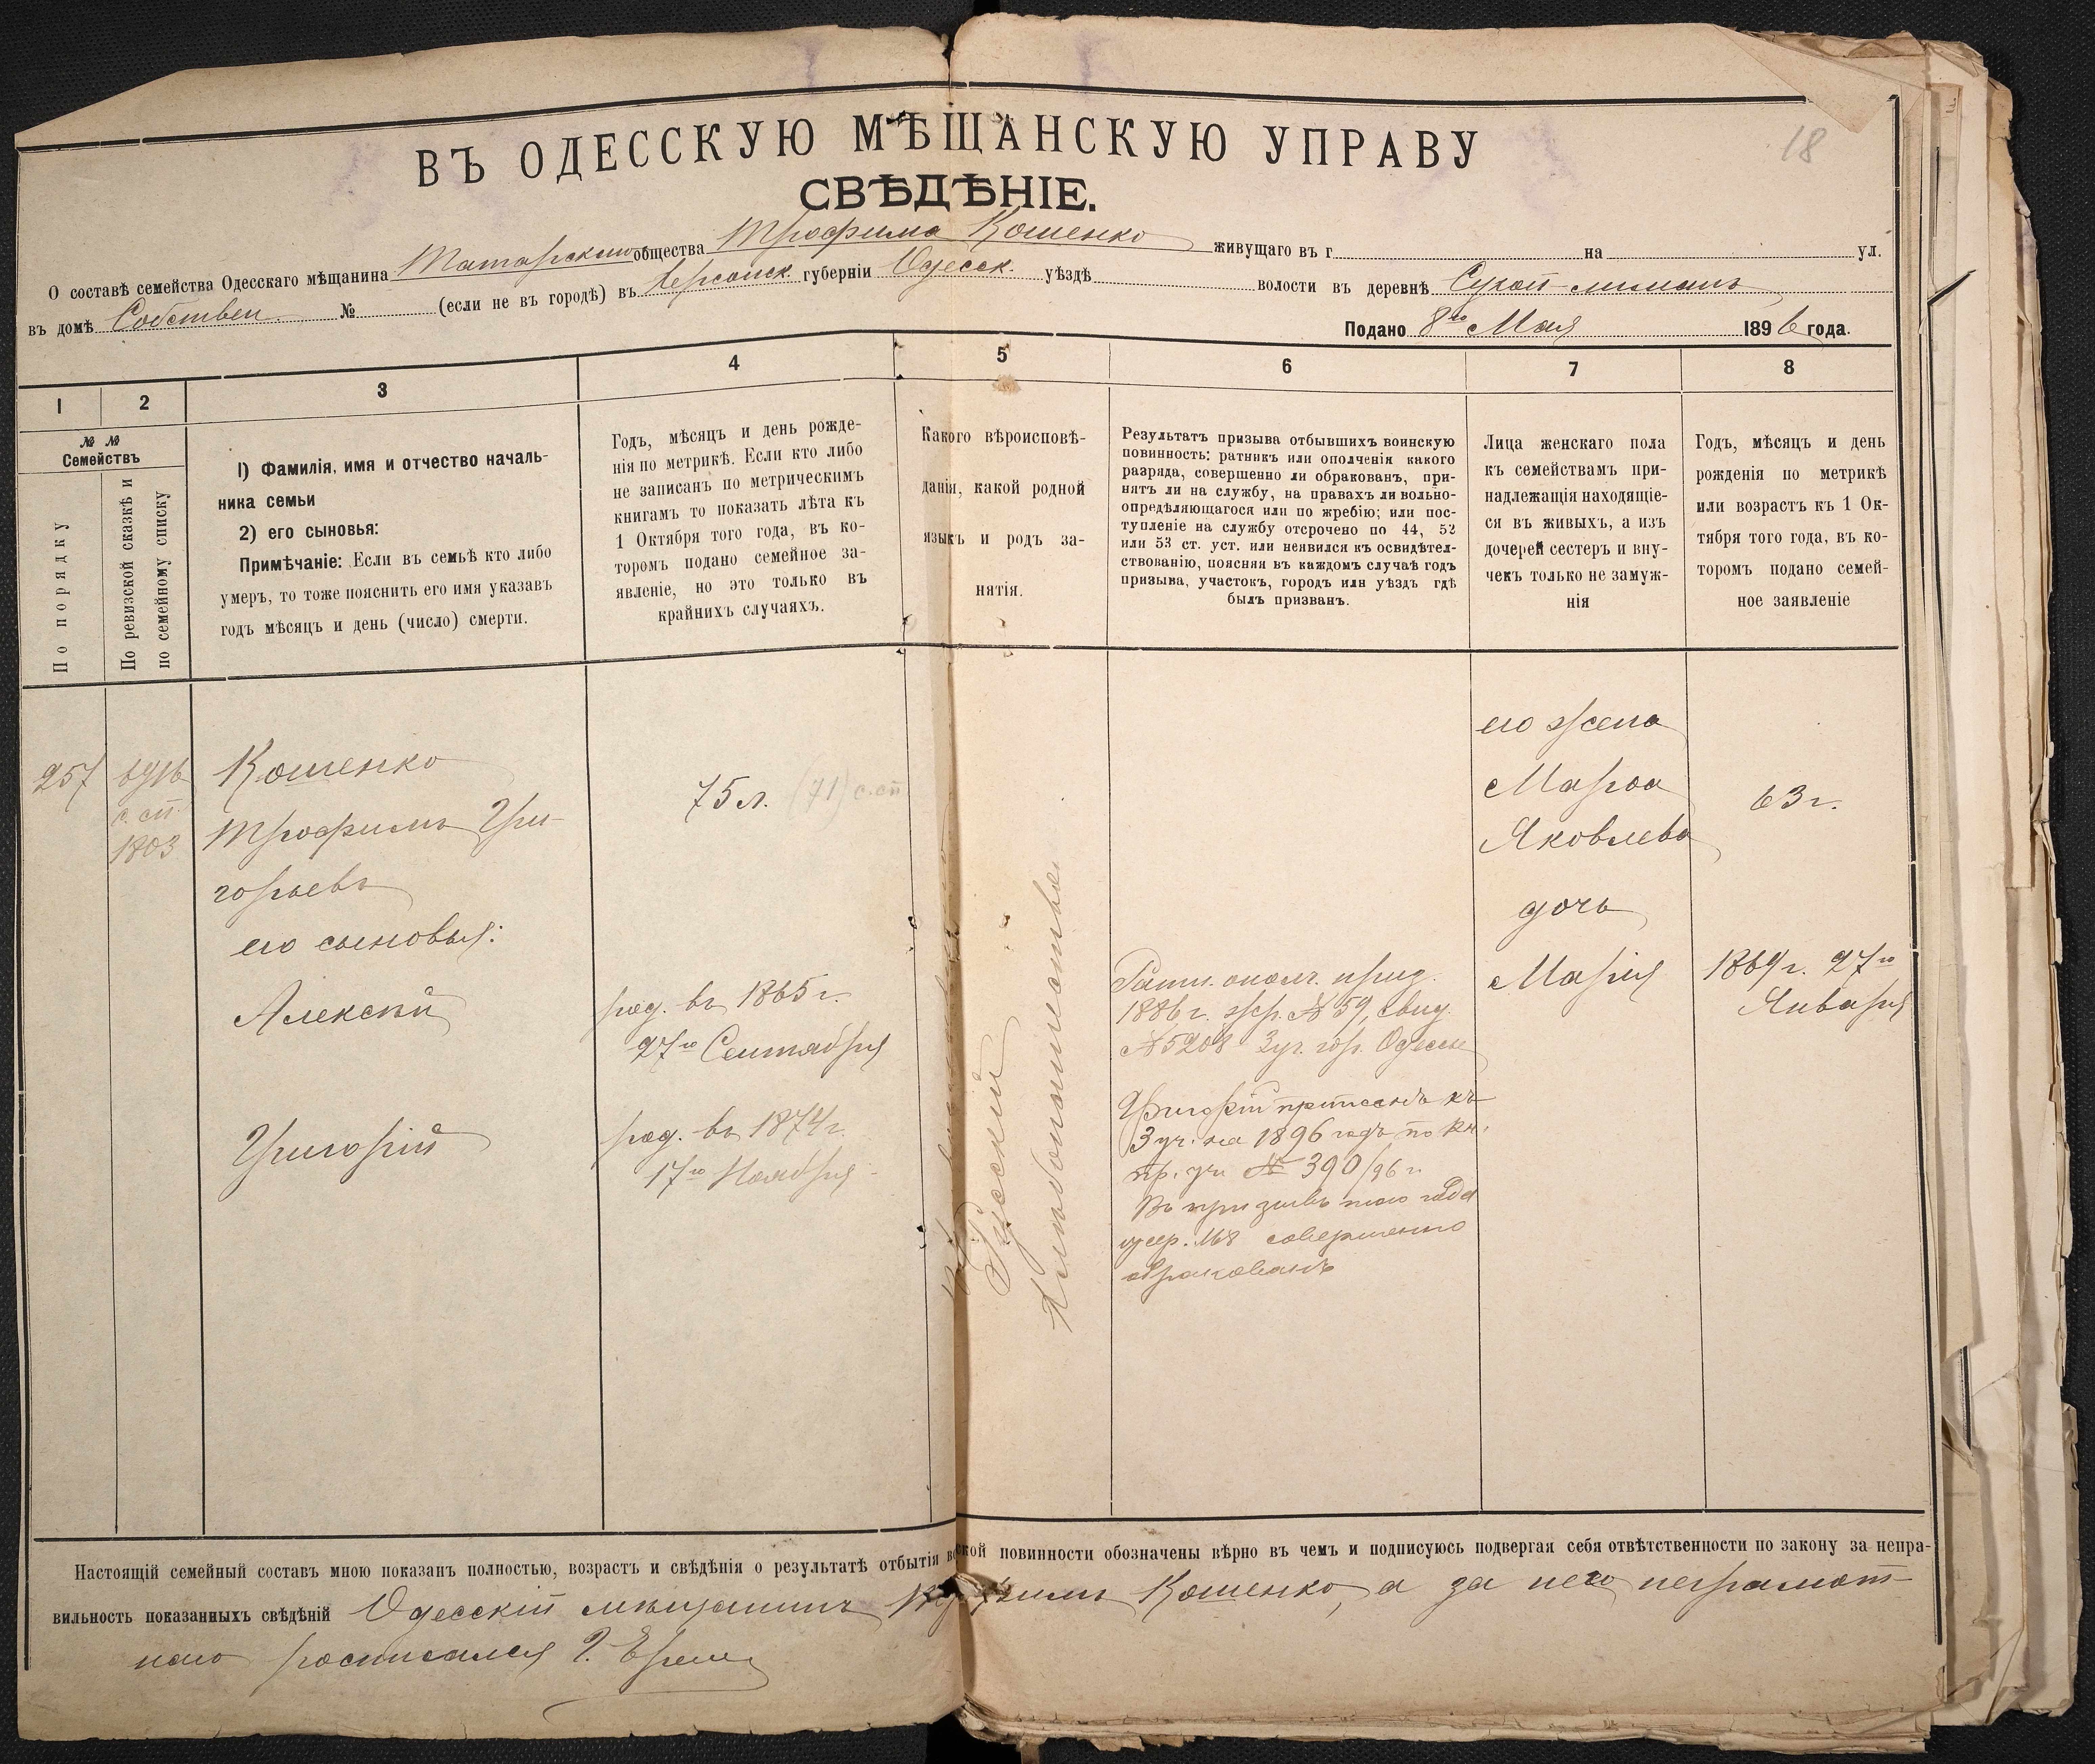 18
ВЪ ОДЕССКУЮ МѢЩАНСКУЮ УПРАВУ
СВѢДѢНІЕ.
О составѣ семейства Одесскаго мѣщанина Татарскаго общества Трофима Кошенко живущаго въ г на ул.
въ домѣ Собствен. № (если не въ городѣ) въ Херсонск. губерніи Одесск. уѣздѣ волости въ деревнѣ Сухой-лиманъ
Подано 8го Мая 1896 года.
1
2
3
4
5
6
7
8
№ №
Семействъ
По порядку
По ревизской сказкѣ и
по семейному списку
1) Фамилія, имя и отчество началь-
ника семьи
2) его сыновья:
Примѣчаніе: Если въ семьѣ кто либо
умеръ, то тоже пояснить его имя указавъ
годъ мѣсяцъ и день (число) смерти.
Годъ, мѣсяцъ и день рожде-
нія по метрикѣ. Если кто либо
не записанъ по метрическимъ
книгамъ то показать лѣта къ
1 Октября того года, въ ко-
торомъ подано семейное за-
явленіе, но это только въ
крайнихъ случаяхъ.
Какого вѣроисповѣ-
данія, какой родной
языкъ и родъ за-
нятія.
Результатъ призыва отбывшихъ воинскую
повинность: ратникъ или ополченія какого
разряда, совершенно ли обракованъ, при-
нятъ ли на службу, на правахъ ли вольно-
опредѣляющагося или по жребію; или пос-
тупленіе на службу отсрочено по 44, 52
или 53 ст. уст. или неявился къ освидѣтел-
ствованію, поясняя въ каждомъ случаѣ годъ
призыва, участокъ, городъ или уѣздъ гдѣ
былъ призванъ.
Лица женскаго пола
къ семействамъ при-
надлежащія находящіе-
ся въ живыхъ, а изъ
дочерей сестеръ и вну-
чекъ только не замуж-
нія
Годъ, мѣсяцъ и день
рожденія по метрикѣ
или возрастъ къ 1 Ок-
тября того года, въ ко-
торомъ подано семей-
ное заявленіе
257
с. сп.
1803
Кошенко
Трофимъ Гри-
горьевъ
его сыновья:
Алексѣй
Григорій
75 л. (71) с. сп
род. въ 1865 г.
27го Сентября
род. въ 1874 г.
17го Ноября
Русскій
Хлѣбопашество
Ратн. ополч. приз.
1886 г. жр. № 59, свид.
№ 5208 3 уч. гор. Одессы
Григорій приписанъ къ
3 уч. на 1896 годъ по кн.
пр. уч № 390/96 г.
Въ призывъ того года
жер. 168 совершенно
обракованъ
его жена
Марѳа
Яковлева
дочь
Марія
63 г.
1869 г. 27го
Января
Настоящій семейный составъ мною показанъ полностью, возрастъ и свѣдѣнія о результатѣ отбытія во ской повинности обозначены вѣрно въ чемъ и подписуюсь подвергая себя отвѣтственности по закону за непра-
вильность показанныхъ свѣдѣній Одесскій мѣщанинъ Кошенко, а за него неграмот-
наго росписался